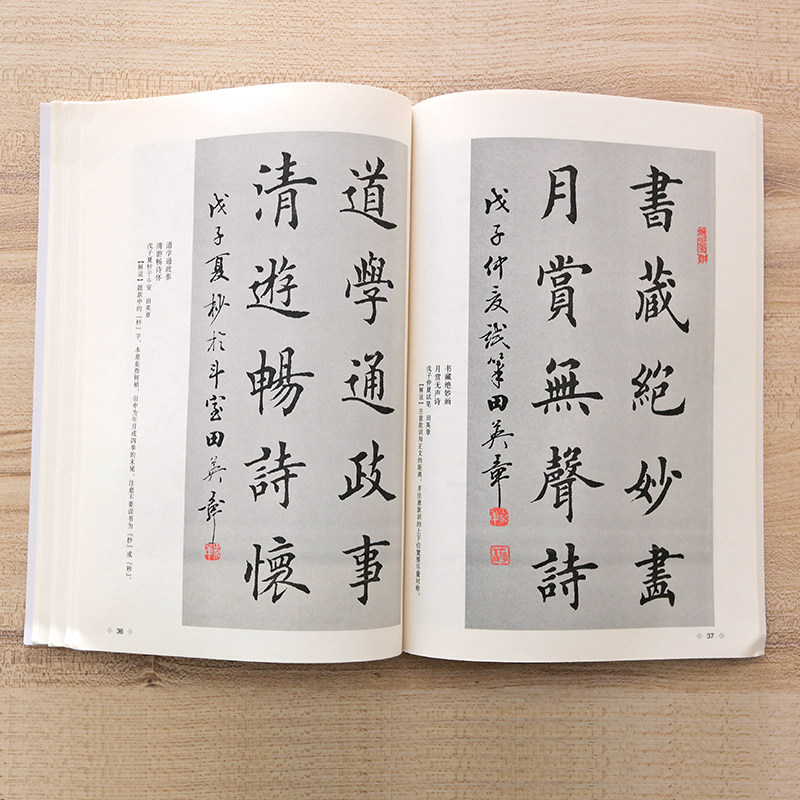 道學通政事
清遊暢詩懷
戊子夏杪於斗室田英章
道学通政事
清游畅诗怀
戊子夏杪于斗室 田英章
【解说】题款中的「杪」字,本意是指树梢,引申为年月或四季的末尾。注意不要误书为「抄」或「秒」。
36
書藏絶妙畫
月賞無聲詩
戊子仲夏試筆田英章
书藏绝妙画
月赏无声诗
戊子仲夏试笔 田英章
【解说】注意款识与正文的距离,并注意款识的上下位置要尽量对称。
37